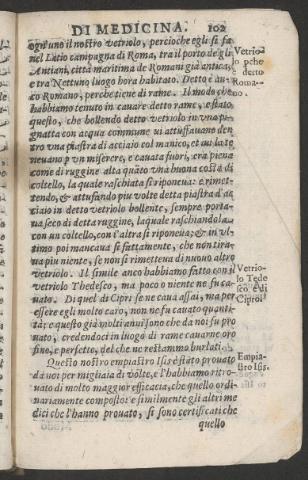 DI MEDICINA. 102
ogn'uno il nostro vetriolo, percioche egli si fa
nel Latio campagna di Roma, tra il porto de gli
Antiani, città maritima de Romani già antica,
e tra Nettuno luogo hora habitato. Detto è an-
co Romano, perche tiene di rame. Il modo che
habbiamo tenuto in cauare detto rame, è stato
questo, che bollendo detto vetriolo in vna pi-
gnatta con acqua commune vi attuffauano den
tro vna piastra di acciaio col manico, et iui la te
neuano p vn miserere, e cauata fuori, era piena
come di ruggine alta quāto vna buona costa di
coltello, la quale raschiata si riponeua: e rimet-
tendo, & attufando piu volte detta piastra d'ac
ciaio in detto vetriolo bollente, sempre porta-
ua seco di detta ruggine, laquale raschiandola
con un coltello, con l'altra si riponeua; & in vl-
timo poi mancaua si fattamente, che non tira-
ua piu niente, se non si rimetteua di nuouo altro
vetriolo. Il simile anco habbiamo fatto con il
vetriolo Thedesco, ma poco o niente ne fu ca-
uato. Di quel di Cipri se ne caua assai, ma per
essere egli molto caro, non ne fu cauato quanti-
tà; e questo già molti anni sono che da noi fu pro
uato, credendoci in luogo di rame cauarne oro
fino, e perfetto, del che ne restammo burlati.
Questo nostro empiastro Isis è stato prouato
da noi per migliaia di volte, e l'habbiamo ritro-
uato di molto maggior efficacia, che quello ordi-
nariamente composto: e similmente gli altri me
dici che l'hanno prouato, si sono certificati che
quello
Vetrio-
lo pche
è detto
Roma-
no.
Vetrio-
lo Tede
sco e di
Cipro.
Empia-
stro Isis.